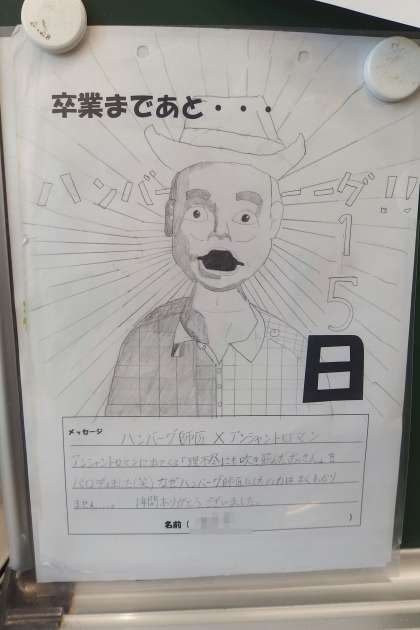 卒業まであと・・・
ハンバーグ!!
15
日
メッセージ
ハンバーグ師匠 × アンシャントロマン
アンシャントロマンにでてくる「理不尽にも吹き飛んだおっさん」を
パロディしました(笑) なぜハンバーグ師匠にしたのかはよくわかり
ません…。 1年間ありがとうございました。
名前( )